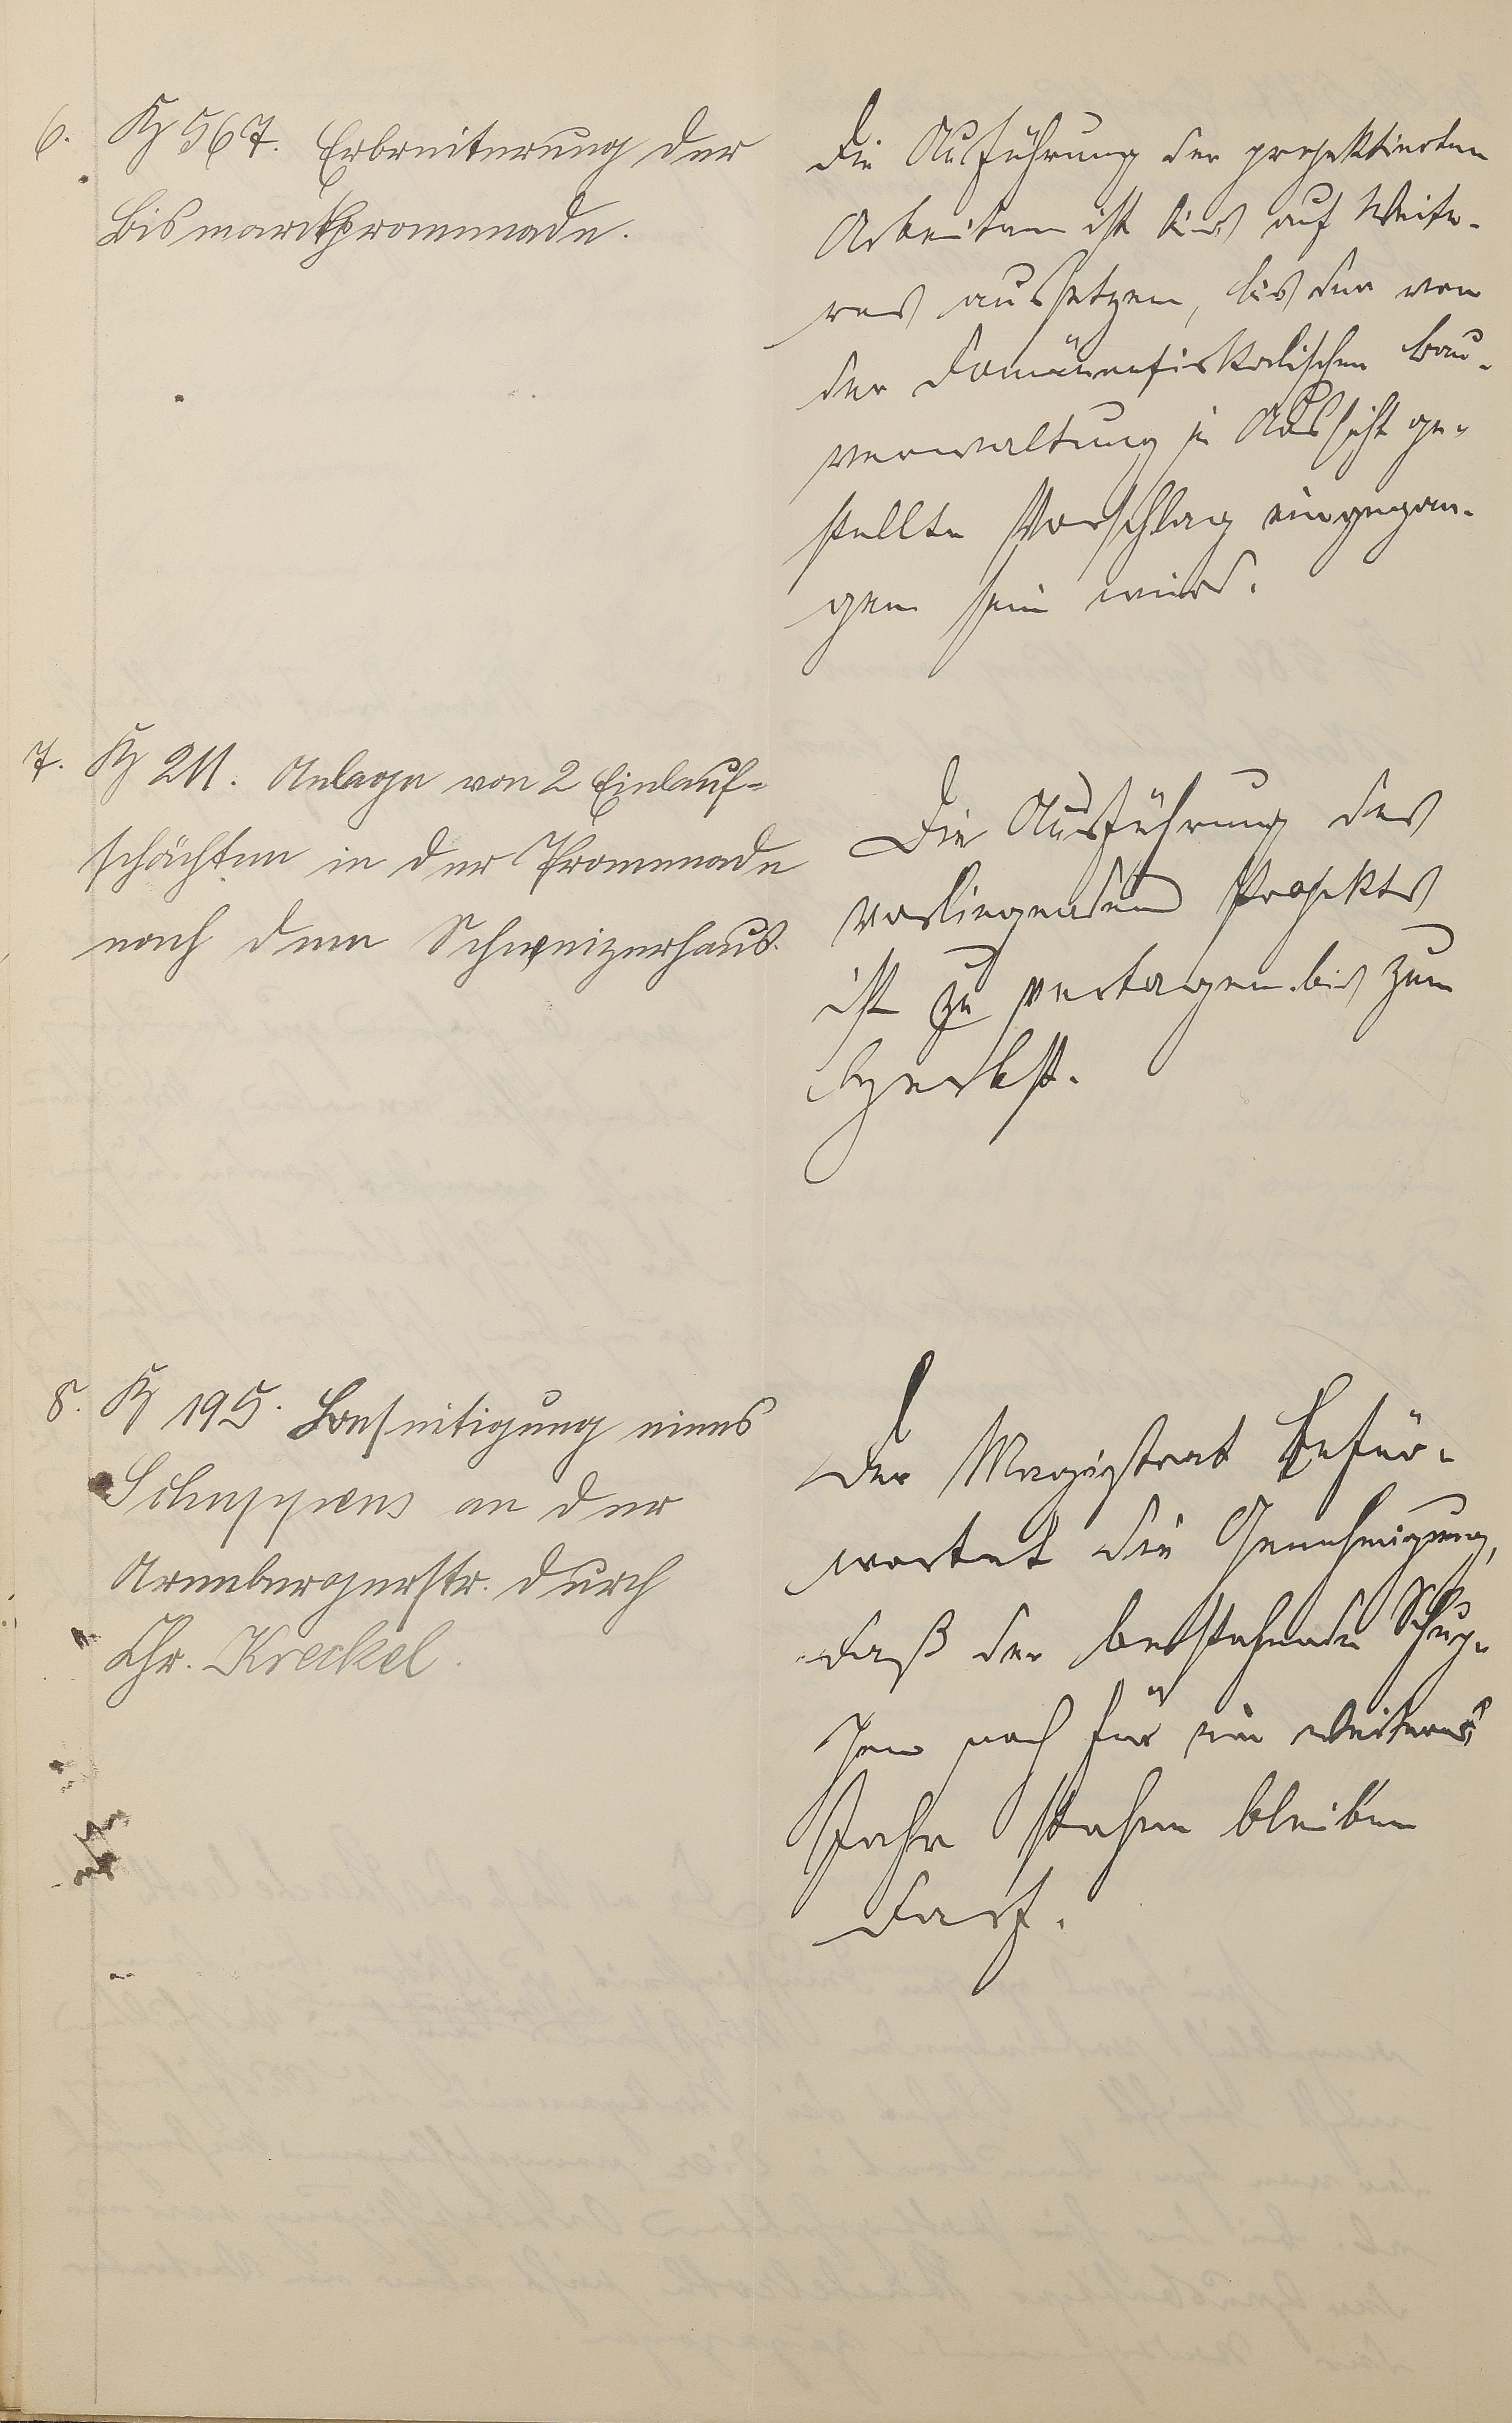 6. K 567. Erbreiterung der
Bismarckpromenade.
Die Ausführung der projektierten
Arbeiten ist bis auf Weite-
res aussetzen, bis der von
der domänenfiskalischen Bau-
verwaltung in Aussicht ge-
stellte Vorschlag eingegan-
gen sein wird.
7. K 211. Anlage von 2 Einlauf-
schächten in der Promenade
nach dem Schweizerhaus.
Die Ausführung des
vorliegenden Projekts
ist zu vertagen bis zum
Herbst.
8. K 195. Beseitigung eines
Schuppens an der
Arenbergerstr. durch
Chr. Kreckel.
Der Magistrat befür-
wortet die Genehmigung,
daß der bestehende Schup-
pen noch für ein weiteres
Jahr stehen bleiben
darf.